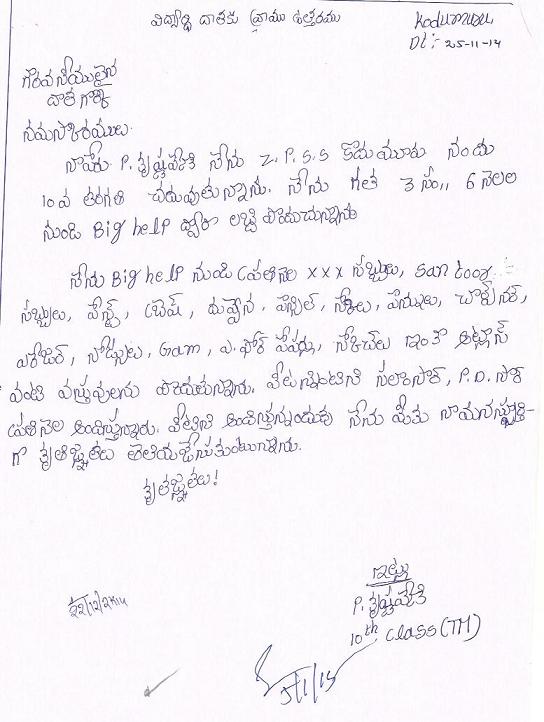 విద్యార్థి దాతకు వ్రాయు ఉత్తరము
Kodumuru
Dt:- 25-11-14
గౌరవనీయులైన
దాత గార్కి
నమస్కారములు.
నాపేరు P. కృష్ణవేణి నేను Z.P.S.S కోడుమూరు నందు
10వ తరగతి చదువుతున్నాను. నేను గత 3 సం,, 6 నెలల
నుండి Big help ద్వారా లబ్ధి పొందుచున్నాను
నేను Big help నుండి ప్రతినెల xxx సబ్బులు, santoor
సబ్బులు, పేస్ట్, బ్రెష్, దువ్వెన, పెన్సిల్, స్కేలు, పెన్నులు, షార్ప్‌నర్,
ఎరేజర్, నోట్సులు, Gam, ఎ.ఫోర్ పేపర్లు, స్కెచ్‌లు ఇంకా అట్లాస్
వంటి వస్తువులను పొందుతున్నాను. వీటన్నింటిని సలాంసార్, P.D. సార్
ప్రతినెల అందిస్తున్నారు. వీటిని అందిస్తున్నందుకు నేను మీకు నా మనస్ఫూర్తి-
గా కృతజ్ఞతలు తెలియజేసుకుంటున్నాను.
కృతజ్ఞతలు!
ఇట్లు
P. కృష్ణవేణి
10th class (TM)
22/12/2014
5/1/15